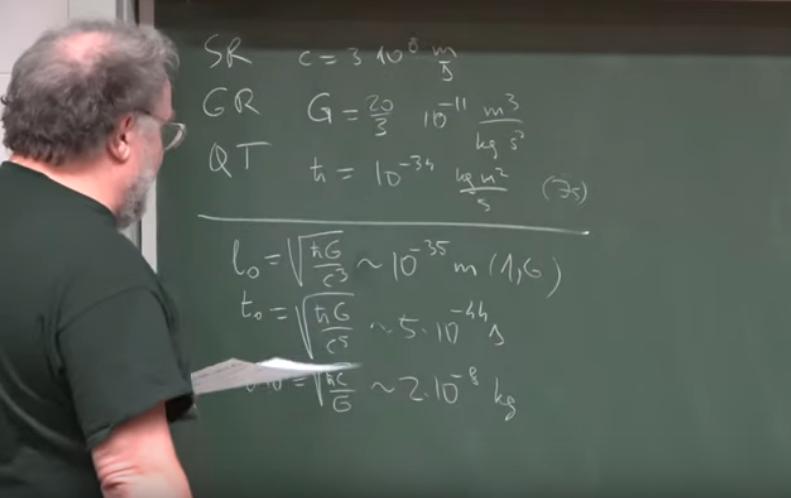 SR c = 3 10⁸ m/s
GR G = 20/3 10⁻¹¹ m³/kg s²
QT ℏ = 10⁻³⁴ kg m²/s (Js)
l₀ = √(ℏG/c³) ~ 10⁻³⁵ m (1,6)
t₀ = √(ℏG/c⁵) ~ 5·10⁻⁴⁴ s
= √(ℏc/G) ~ 2·10⁻⁸ kg